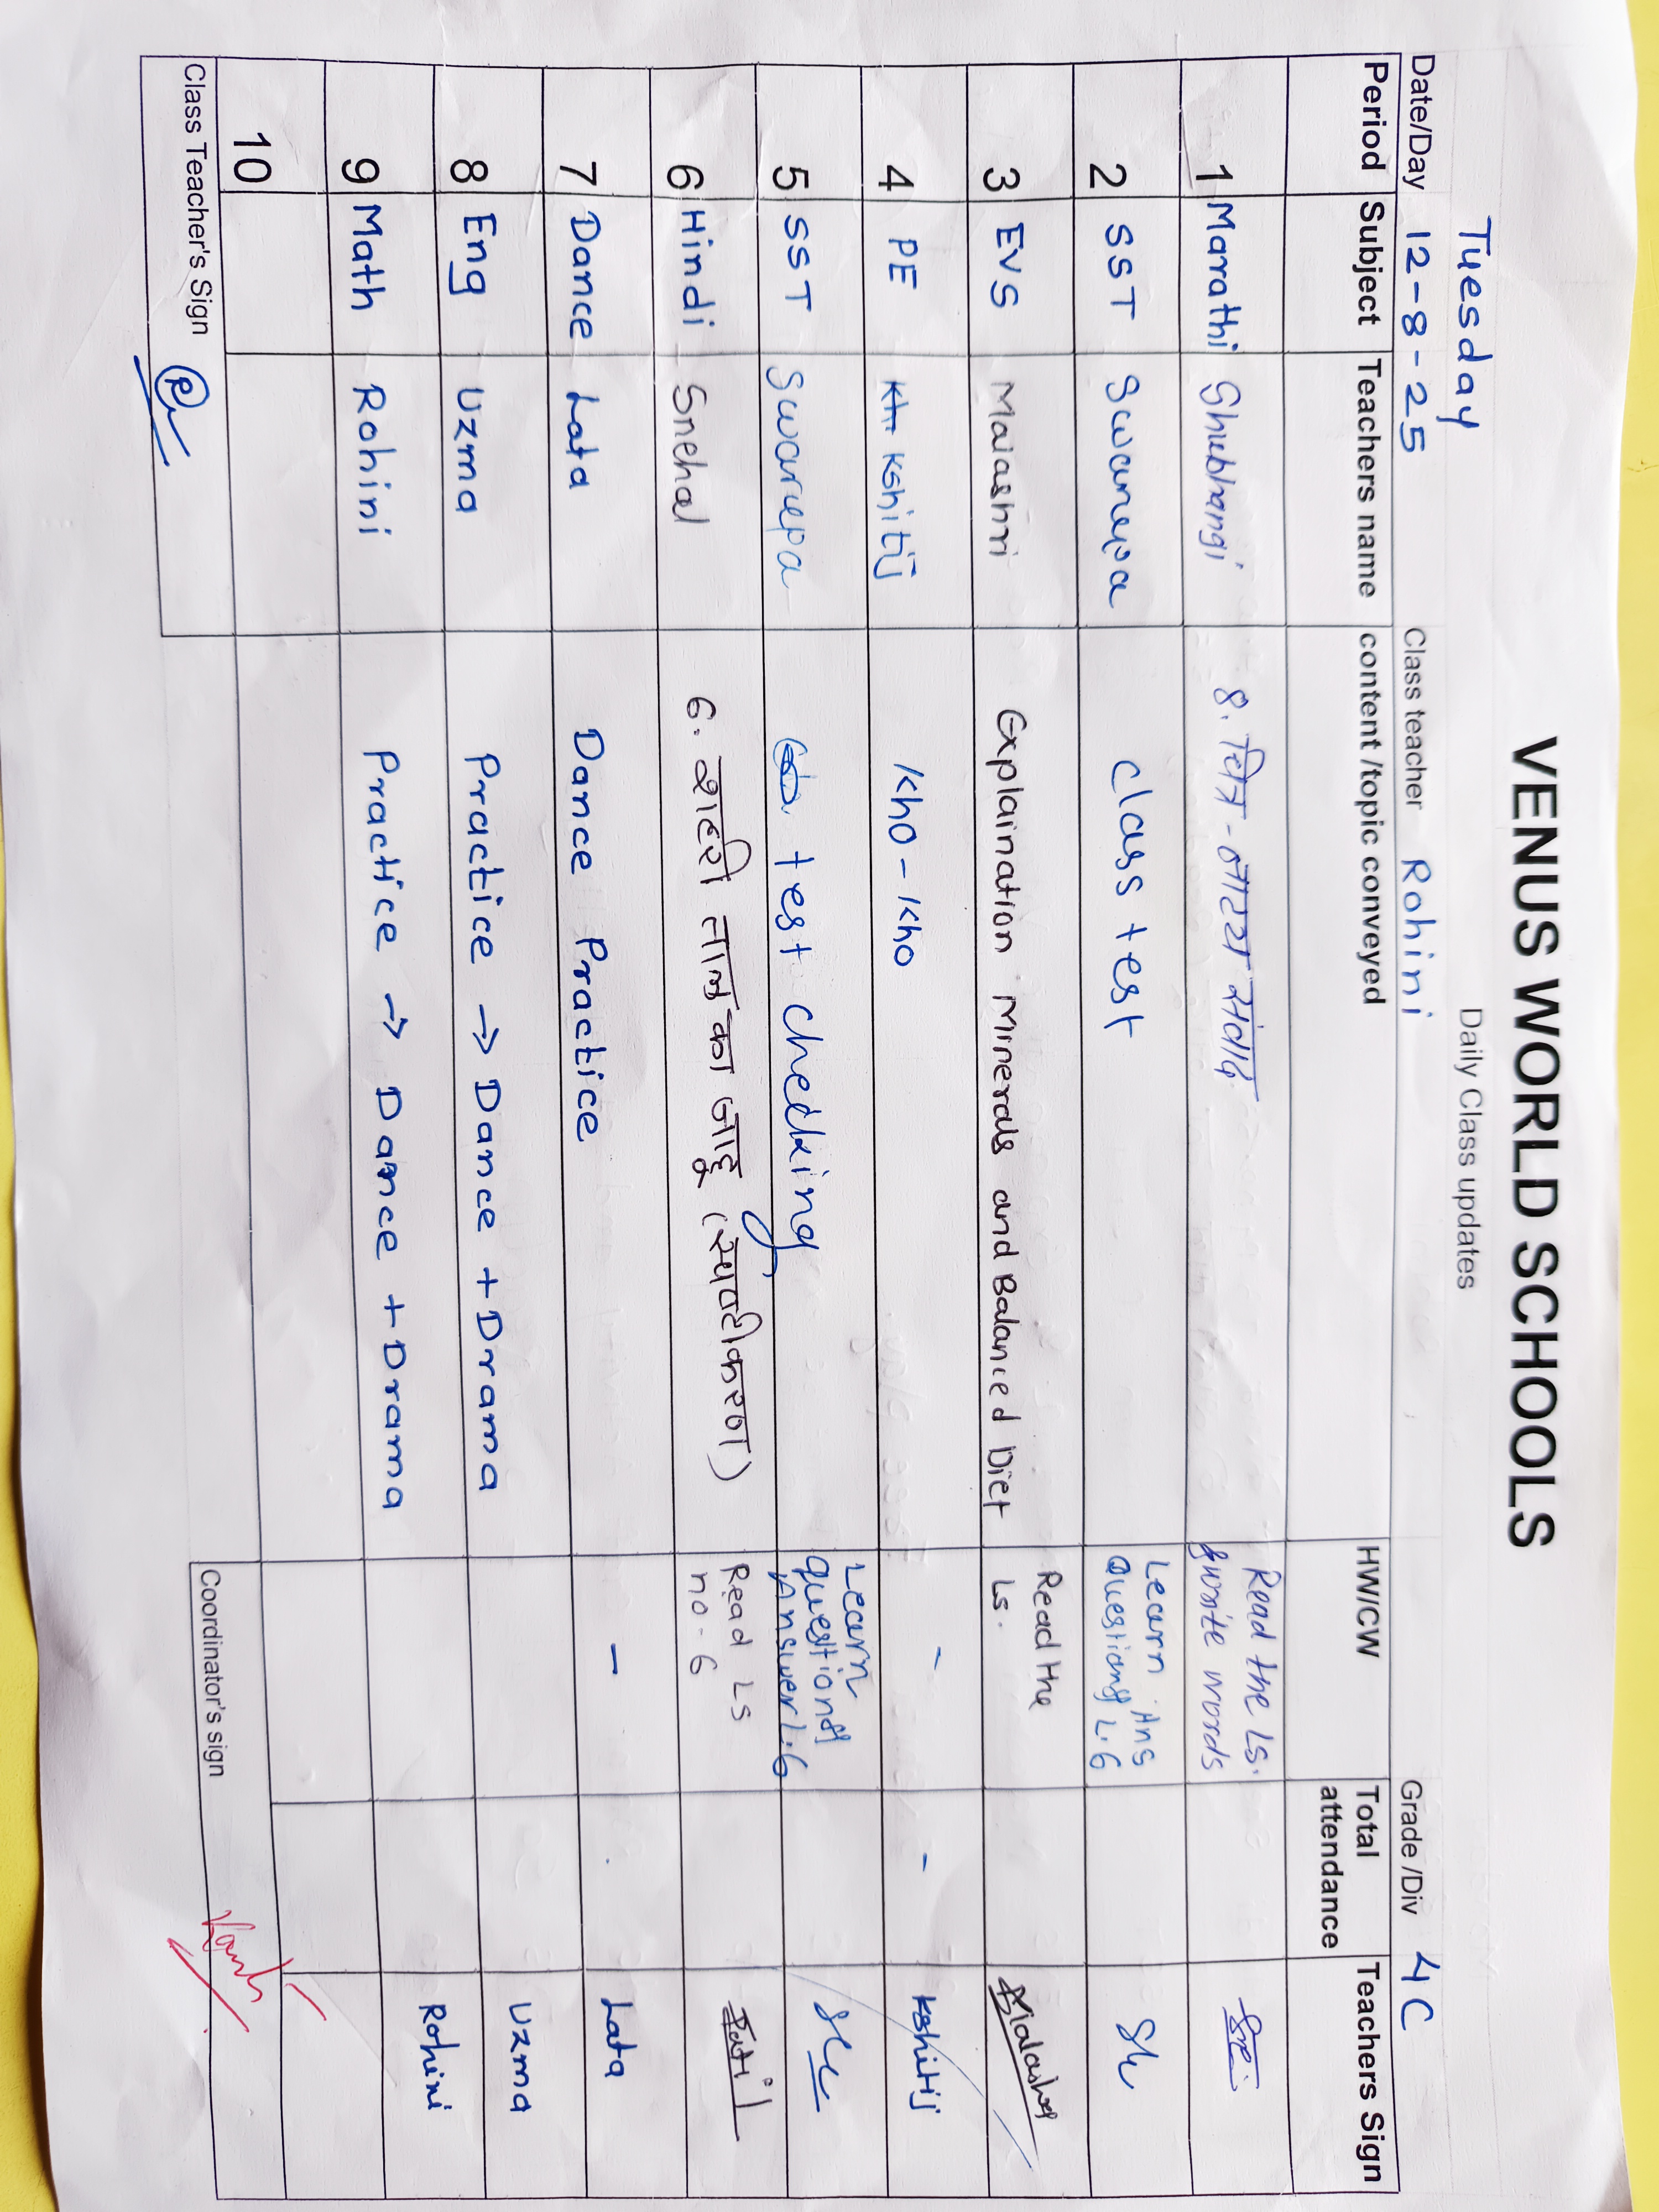 VENUS WORLD SCHOOLS
Daily Class updates
Tuesday
Date/Day 12-8-25 Class teacher Rohini Grade /Div 4C
Period Subject Teachers name content /topic conveyed HW/CW Total attendance Teachers Sign
1 Marathi Shubhangi 8. चित्र - नाट्य संवाद Read the Ls.
& write words
2 SST Swarupa class test Learn Ans
Questions L.6 Sk
3 EVS Maiashri Explaination Minerals and Balanced Diet Read the
Ls.
4 PE Kshitij Kho-Kho - - Kshitij
5 SST Swarupa test checking Learn
questions
Answer L.6
6 Hindi Snehal 6. शाही लाल का जादू (स्पष्टीकरण) Read Ls
no - 6 Patil
7 Dance Lata Dance Practice - Lata
8 Eng Uzma Practice → Dance + Drama Uzma
9 Math Rohini Practice → Dance + Drama Rohini
10
Class Teacher's Sign Coordinator's sign